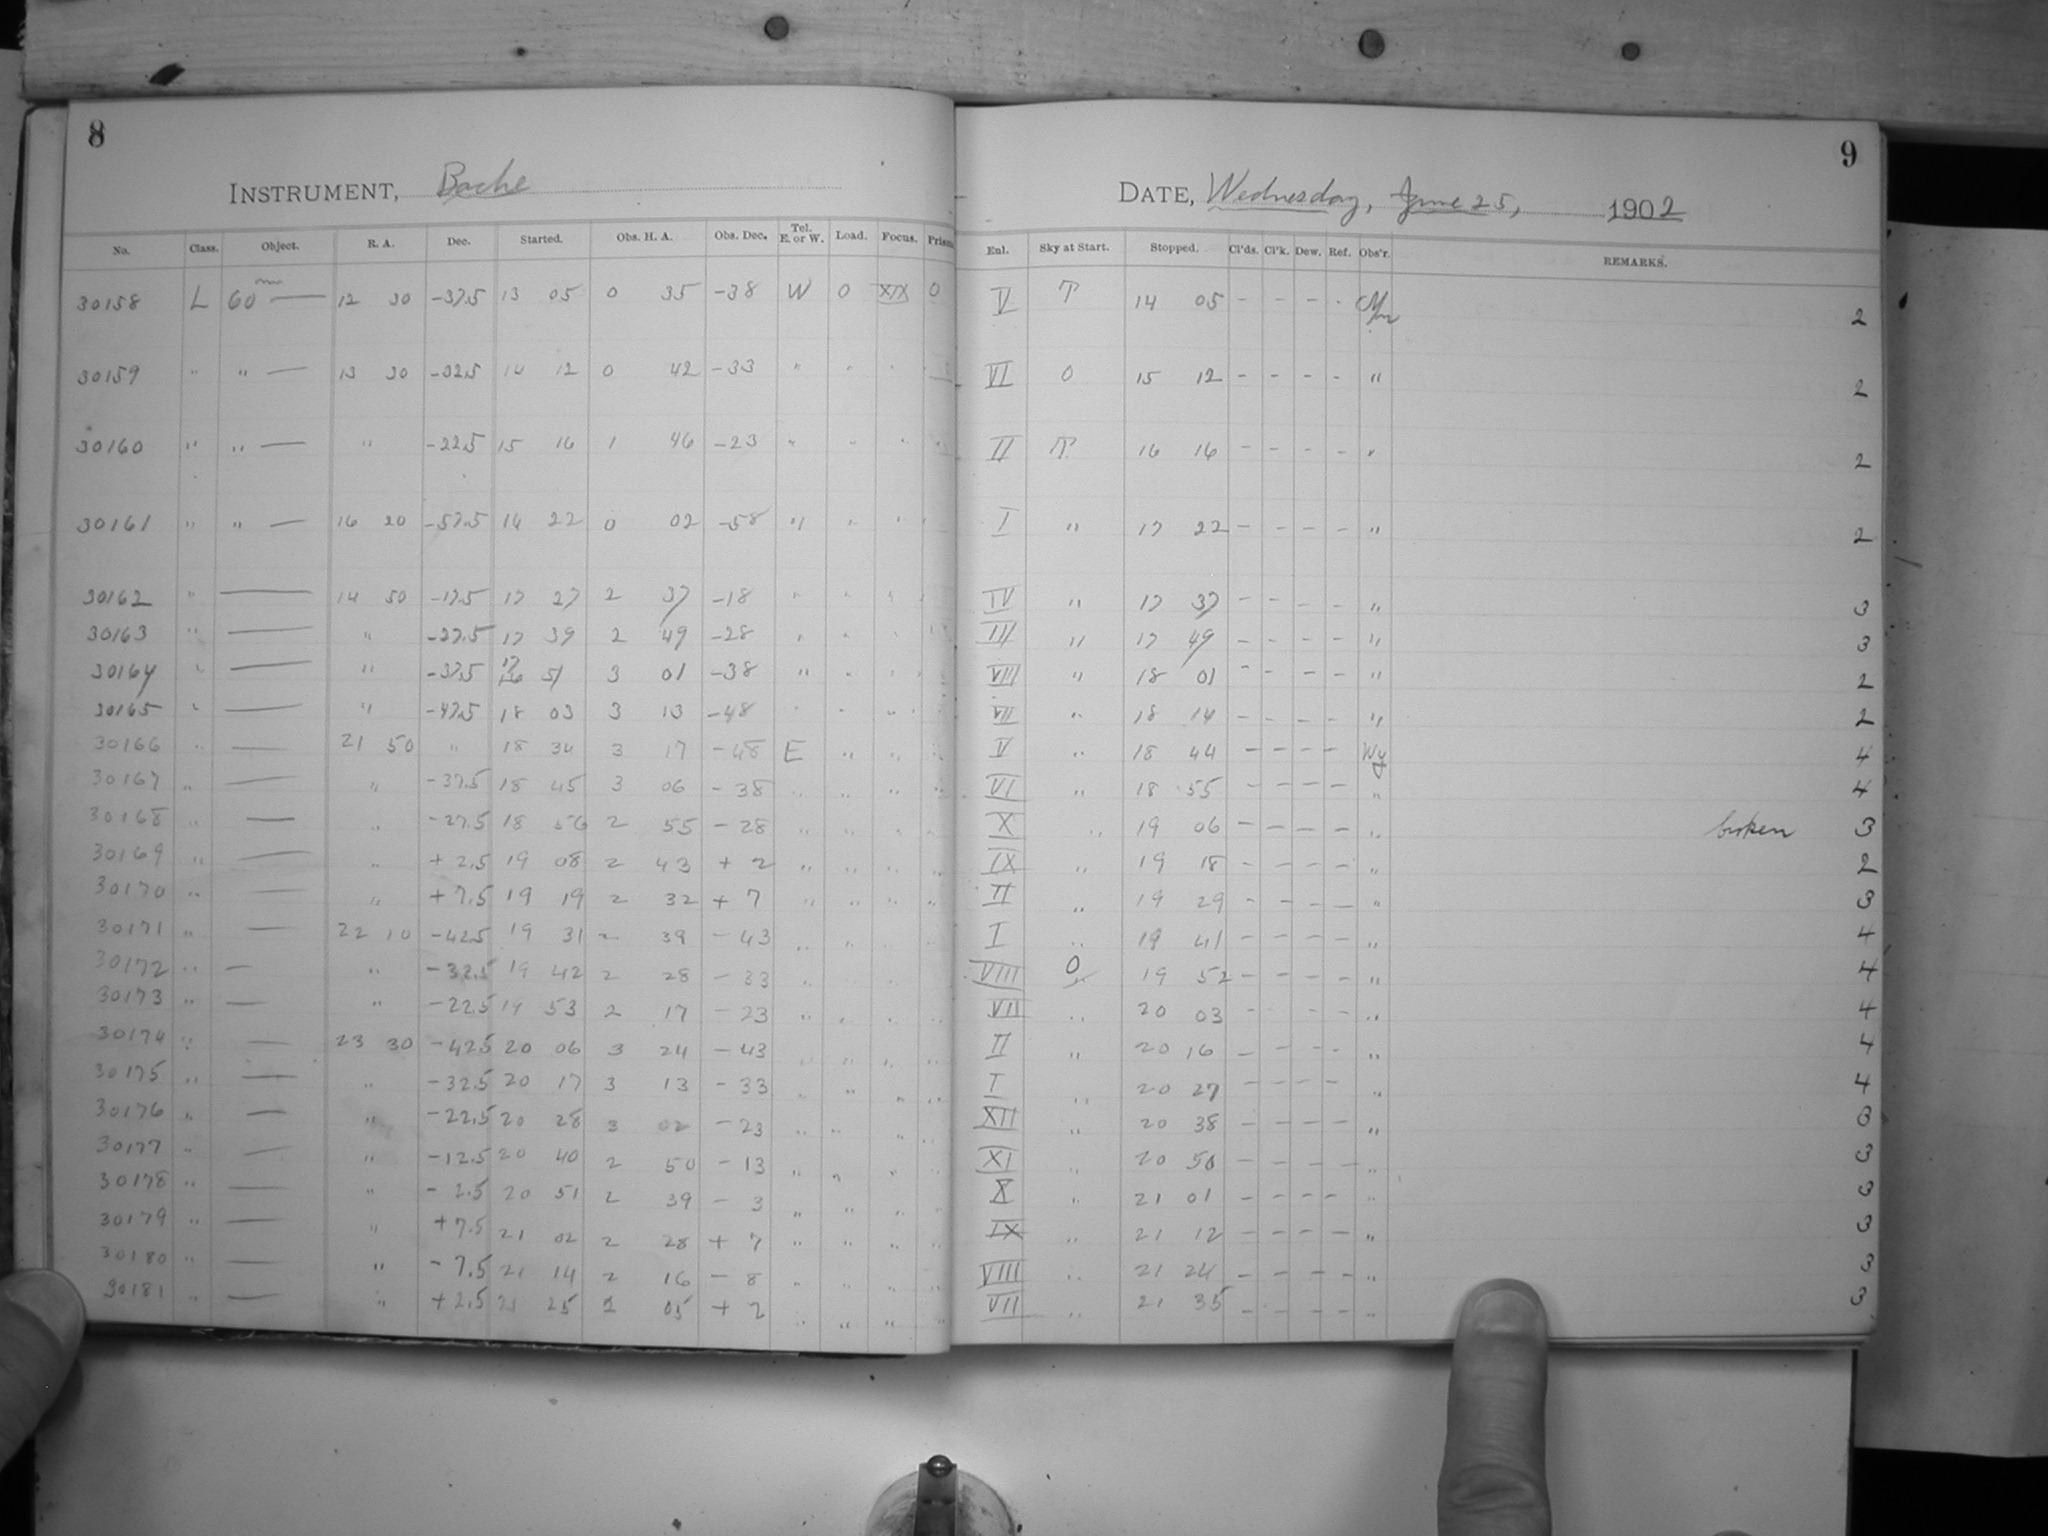 8
9
INSTRUMENT, Bache
DATE, Wednesday, June 25, 1902
No. Class. Object. R. A. Dec. Started. Obs. H. A. Obs. Dec. Tel. E. or W. Load. Focus. Prism Enl. Sky at Start. Stopped. Cl'ds. Cl'k. Dew. Ref. Obs'r. REMARKS.
30158 L 60m — 12 30 -37.5 13 05 0 35 -38 W 0 XIX 0 V T 14 05 - - - - 2
30159 " " — 13 30 -32.5 14 12 0 42 -33 " " " " VI 0 15 12 - - - - " 2
30160 " " — " -22.5 15 16 1 46 -23 " " " " II T 16 16 - - - - " 2
30161 " " — 16 20 -57.5 16 22 0 02 -58 " " " " I " 17 22 - - - - " 2
30162 " — 14 50 -17.5 17 27 2 37 -18 " " " " IV " 17 37 - - - - " 3
30163 " — " -27.5 17 39 2 49 -28 " " " " III " 17 49 - - - - " 3
30164 " — " -37.5 17 51 3 01 -38 " " " " VIII " 18 01 - - - - " 2
30165 " — " -47.5 18 03 3 13 -48 " " " " VII " 18 14 - - - - " 2
30166 " — 21 50 " 18 34 3 17 -48 E " " " V " 18 44 - - - - Wy 4
30167 " — " -37.5 18 45 3 06 -38 " " " " VI " 18 55 - - - - " 4
30168 " — " -27.5 18 56 2 55 -28 " " " " X " 19 06 - - - - " broken 3
30169 " — " +2.5 19 08 2 43 +2 " " " " IX " 19 18 - - - - " 2
30170 " — " +7.5 19 19 2 32 +7 " " " " II " 19 29 - - - - " 3
30171 " — 22 10 -42.5 19 31 2 39 -43 " " " " I " 19 41 - - - - " 4
30172 " — " -32.5 19 42 2 28 -33 " " " " VIII 0 19 52 - - - - " 4
30173 " — " -22.5 19 53 2 17 -23 " " " " VII " 20 03 - - - - " 4
30174 " — 23 30 -42.5 20 06 3 24 -43 " " " " II " 20 16 - - - - " 4
30175 " — " -32.5 20 17 3 13 -33 " " " " I " 20 27 - - - - " 4
30176 " — " -22.5 20 28 3 02 -23 " " " " XII " 20 38 - - - - " 3
30177 " — " -12.5 20 40 2 50 -13 " " " " XI " 20 50 - - - - " 3
30178 " — " -2.5 20 51 2 39 -3 " " " " X " 21 01 - - - - " 3
30179 " — " +7.5 21 02 2 28 +7 " " " " IX " 21 12 - - - - " 3
30180 " — " -7.5 21 14 2 16 -8 " " " " VIII " 21 24 - - - - " 3
30181 " — " +2.5 21 25 2 05 +2 " " " " VII " 21 35 - - - - " 3